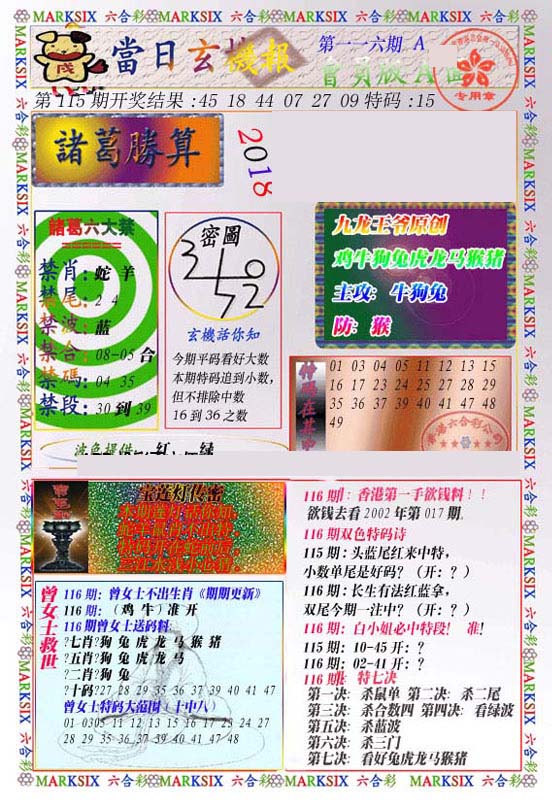 MARKSIX 六合彩 MARKSIX 六合彩 MARKSIX 六合彩 MARKSIX 六合彩
當日玄機報
第一一六期 A
會員版 A 面
专用章
第 115 期开奖结果 :45 18 44 07 27 09 特码 :15
諸葛勝算
2018
諸葛六大禁
禁肖: 蛇 羊
禁尾: 2 4
禁波: 蓝
禁合: 08-05 合
禁碼: 04 35
禁段: 30 到 39
密圖
玄機話你知
今期平码看好大数
本期特码追到小数,
但不排除中数
16 到 36 之数
九龙王爷原创
鸡牛狗兔虎龙马猴猪
主攻: 牛狗兔
防: 猴
01 03 04 05 11 12 13 15
16 17 23 24 25 27 28 29
35 36 37 39 40 41 47 48
49
波色提供 红 绿
宝莲灯传密
曾女士救世
116 期: 曾女士不出生肖《期期更新》
116 期: (鸡 牛) 准 开
116 期曾女士送码料:
?七肖?狗 兔 虎 龙 马 猴 猪
?五肖?狗 兔 虎 龙 马
?二肖?狗 兔
?十码?27 28 29 35 36 37 39 40 41 47
曾女士特码大范围 (十中八)
01 0305 11 12 13 15 16 17 23 24 27
28 29 35 36 37 39 40 41 47 48
116 期: 香港第一手欲钱料!!
欲钱去看 2002 年第 017 期。
116 期双色特码诗
115 期: 头蓝尾红来中特,
小数单尾是好码? (开: ?)
116 期: 长生有法红蓝拿,
双尾今期一注中? (开: ?)
116 期: 白小姐必中特段! 准!
115 期: 10-45 开: ?
116 期: 02-41 开: ?
116 期: 特七决
第一决: 杀鼠单 第二决: 杀二尾
第三决: 杀合数四 第四决: 看绿波
第五决: 杀蓝波
第六决: 杀三门
第七决: 看好兔虎龙马猴猪
MARKSIX 六合彩 MARKSIX 六合彩 MARKSIX 六合彩 MARKSIX 六合彩